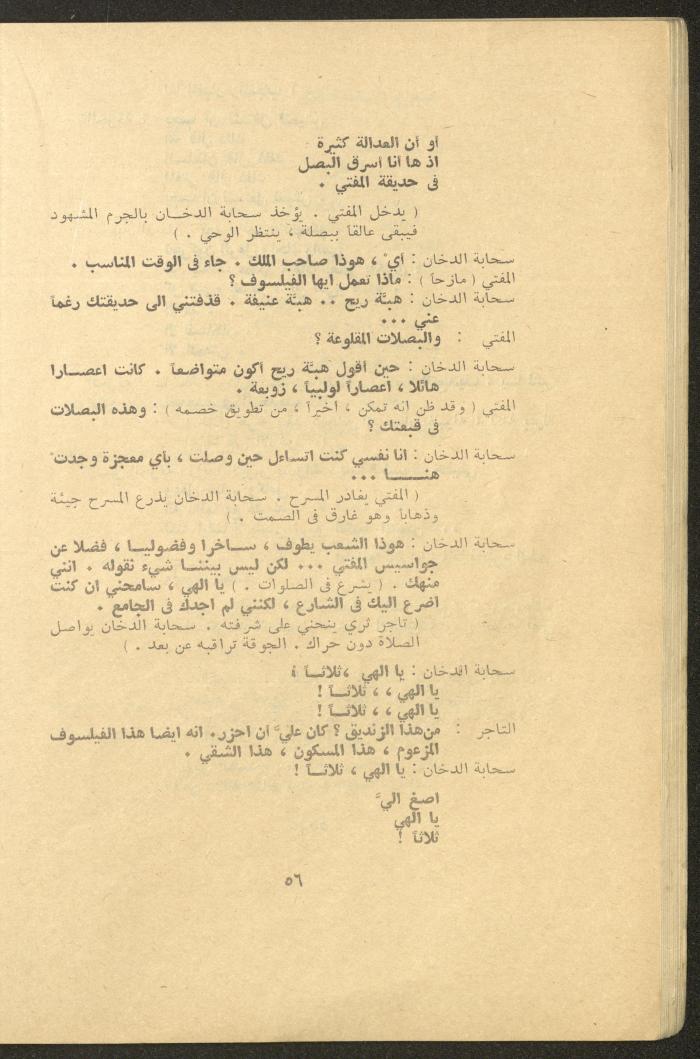 أو أن العدالة كثيرة
اذ ها أنا أسرق البصل
فى حديقة المفتي .
( يدخل المفتي . يؤخذ سحابة الدخـان بالجرم المشهود
فيبقى عالقاً ببصلة ، ينتظر الوحي . )
سحابة الدخان : أيْ ، هوذا صاحب الملك . جاء فى الوقت المناسب .
المفتي ( مازحاً ) : ماذا تعمل ايها الفيلسوف ؟
سحابة الدخان : هبّة ريح .. هبّة عنيفة . قذفتني الى حديقتك رغماً
عني ...
المفتي : والبصلات المقلوعة ؟
سحابة الدخان : حين أقول هبّة ريح أكون متواضعاً . كانت اعصـــارا
هائلا ، اعصاراً لولبياً ، زوبعة .
المفتي ( وقد ظن انه تمكن ، أخيراً ، من تطويق خصمه ) : وهذه البصلات
فى قبعتك ؟
سحابة الدخان : أنا نفسي كنت اتساءل حين وصلت ، بأي معجزة وجدتْ
هنـــــا ...
( المفتي يغادر المسرح . سحابة الدخان يذرع المسرح جيئة
وذهاباً وهو غارق فى الصمت . )
سحابة الدخان : هوذا الشعب يطوف ، ســاخرا وفضوليــا ، فضلا عن
جواسيس المفتي ... لكن ليس بيننــا شيء نقوله . انني
منهك . ( يشرع فى الصلوات . ) يا الهي ، سامحني ان كنت
اضرع اليك فى الشارع ، لكنني لم اجدك فى الجامع .
( تاجر ثري ينحني على شرفته . سحابة الدخان يواصل
الصلاة دون حراك . الجوقة تراقبه عن بعد . )
سحابة الدخان : يا الهي ،ثلاثــاً !
يا الهي ، ، ثلاثــاً !
يا الهي ، ، ثلاثــاً !
التاجر : من هذا الزنديق ؟ كان عليَّ أن احزر. انه ايضا هذا الفيلسوف
المزعوم ، هذا المسكون ، هذا الشقي .
سحابة الدخان : يا الهي ، ثلاثــاً !
اصغ اليَّ
يا الهي
ثلاثاً !
٥٦